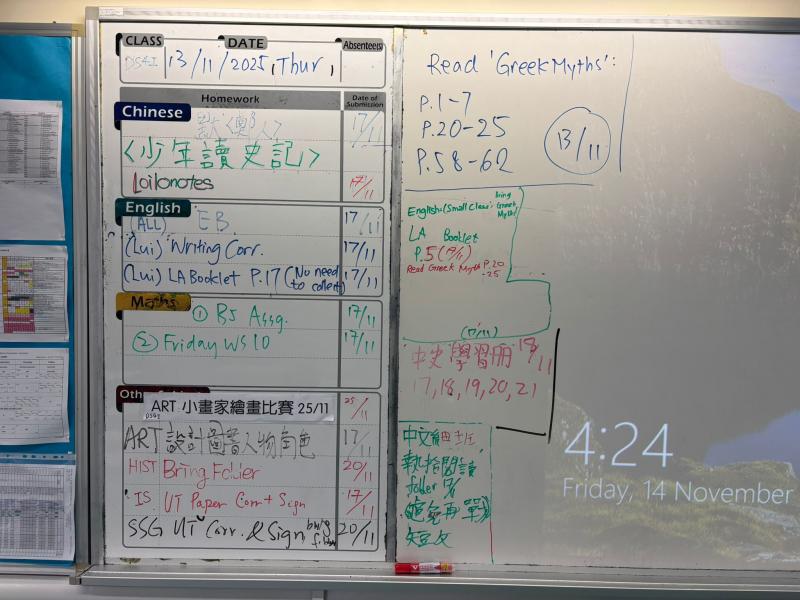 CLASS DATE Absentees
DS4I 13/11/2025, Thur,
Homework Date of Submission
Chinese
默<鄭人> 17/11
<少年讀史記>
Loilonotes 17/11
English
(ALL) EB 17/11
(Lui) Writing Corr. 17/11
(Lui) LA Booklet P.17 (No need to collect) 17/11
Maths
① B5 Assg. 17/11
② Friday WS 10 17/11
ART 小畫家繪畫比賽 25/11 25/11
ART 設計圖書人物角色 17/11
HIST Bring Folder 20/11
IS UT Paper Corr + Sign 17/11
SSG UT Corr. & Sign 20/11
Read 'Greek Myths':
P.1-7
P.20-25
P.58-62
13/11
English (Small Class): bring Greek Myths
LA Booklet
P.5 (17/11)
Read Greek Myth P.20-25
(17/11)
中史 學習冊 18/11
17, 18, 19, 20, 21
中文細班
執拾閱讀
folder
龜兔再戰
短文
4:24
Friday, 14 November